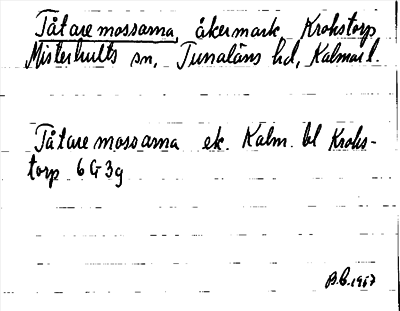 Tåtaremossarna, åkermark Krokstorp
Misterhults sn, Tunaläns hd, Kalmar l.
Tåtaremossarna ek. Kalm. bl Kroks-
torp 6G3g
B.C. 1967